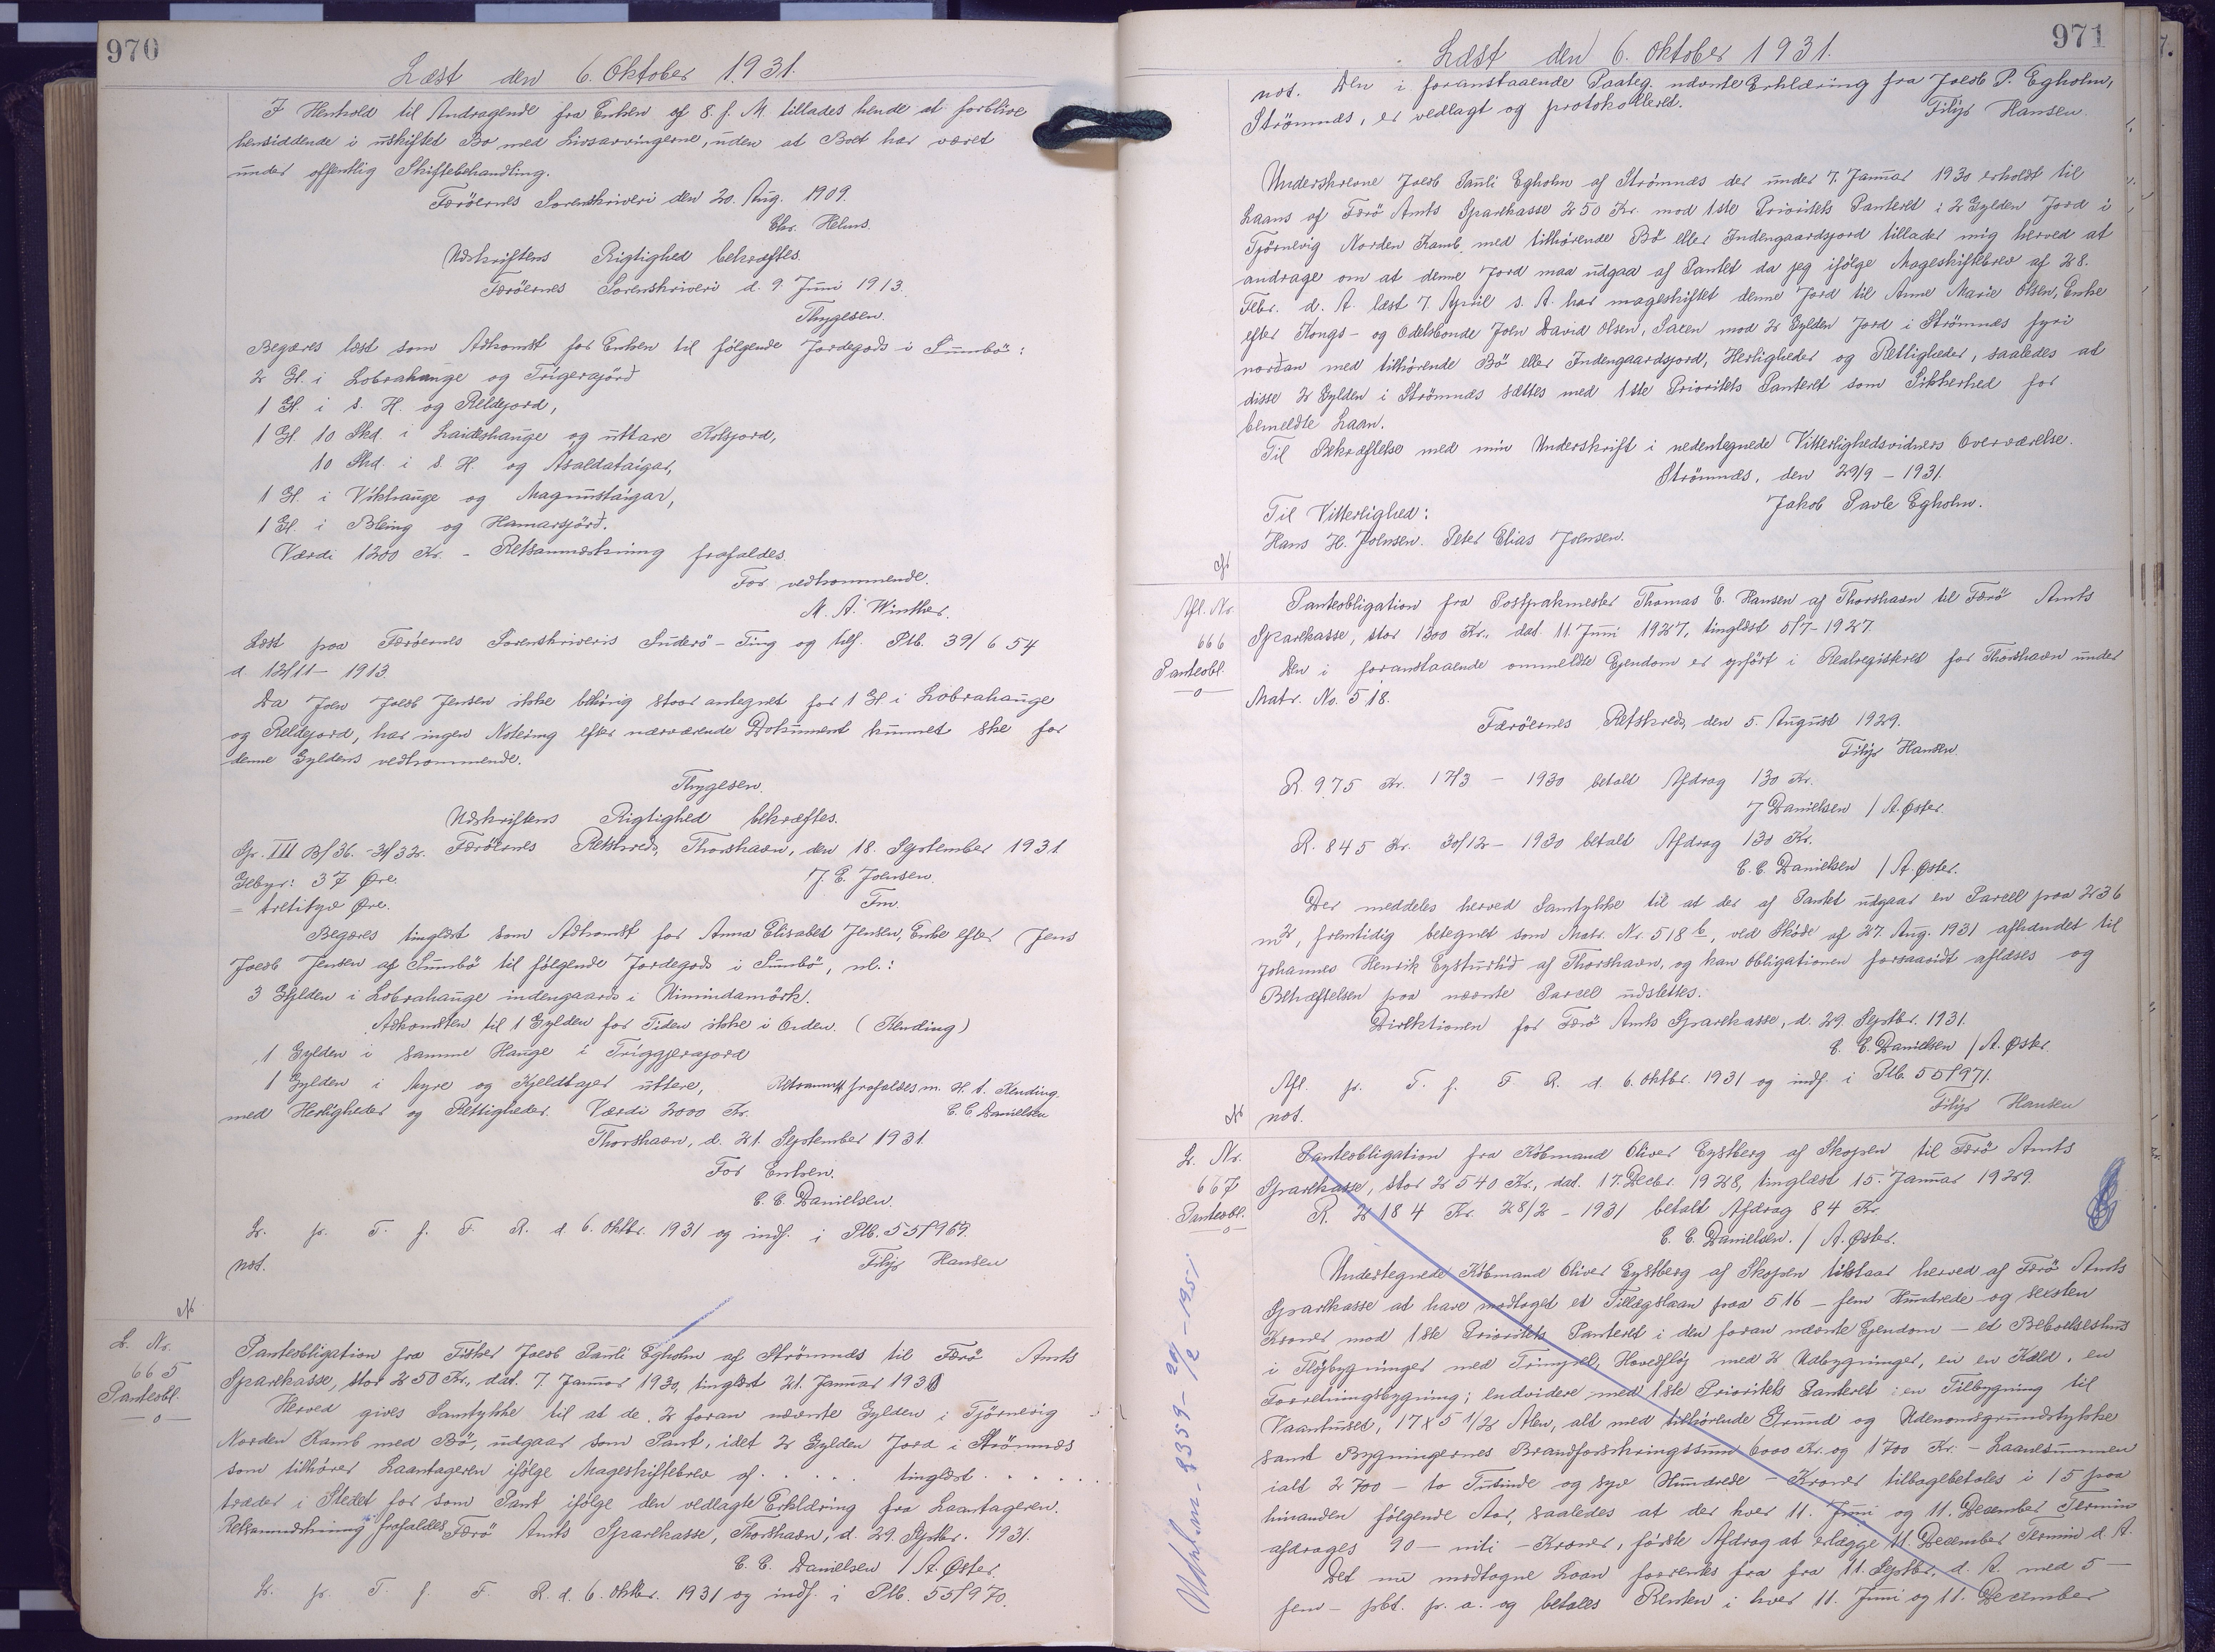 970
Læst den 6. Oktober 1931.
I Henhold til Andragende fra Enken af 8. f. M. tillades hende at forblive
hensiddende i uskiftet Bo med Livsarvingerne, uden at Boet har været
under offentlig Skiftebehandling.
Færöernes Sorenskriveri den 20. Aug. 1909.
Chr. Helms.
Udskriftens Rigtighed bekræftes.
Færöernes Sorenskriveri d. 9 Juni 1913.
Thygesen.
Begæres læst som Adkomst for Enken til følgende Jordegods i Sumbö:
2 Gl. i Lobrahauge og Trigerajörd
1 Gl. i s. H. og Reldejord,
1 Gl. 10 Skd. i Laideshauge og uttare Kolsjord,
10 Skd. i s. H. og Asaldataigar,
1 Gl. i Vikhauge og Magnustaigar,
1 Gl. i Bleing og Hamarsjörd.
Værdi 1200 Kr. - Retsanmærkning frafaldes.
For vedkommende.
M. A. Winther.
Læst paa Færöernes Sorenskriveris Suderö-Ting og tilf. Ptb. 39/654
d. 12/11- 1913.
Da Joen Jacob Jensen ikke behörig staar antegnet for 1 Gl i Lobrahauge
og Reldejord, har ingen Notering efter nærværende Dokument kunnet ske for
denne Gyldens vedkommende.
Thygesen.
Udskriftens Rigtighed bekræftes.
Gr. III B/36. - 2/32. Færöernes Retskreds, Thorshavn, den 18. September 1931.
Gebyr: 37 Øre.
J. E. Joensen.
= tretisyv Øre.
Fm.
Begæres tinglæst som Adkomst for Anna Elisabet Jensen, Enke efter Jens
Jacob Jensen af Sumbö til følgende Jordegods i Sumbö, nl.:
3 Gylden i Lobrahauge indengaards i Uimindamörk.
Adkomsten til 1 Gylden for Tiden ikke i Orden. (Kending)
1 Gylden i samme Hauge i Triggjerajord
1 Gylden i Myre og Kjeldtajer uttere, Retsanmk frafaldes m. H. t. Kending.
med Herligheder og Rettigheder. Værdi 2000 Kr. E. C. Danielsen
Thorshavn, d. 21. September 1931.
For Enken.
E. C. Danielsen.
Lr. pr. T. f. F. R. d. 6. Oktbr. 1931 og indf. i Ptb. 55/969.
not.
Filip Hansen
L. Nr.
665
Panteobl.
Panteobligation fra Fisker Jacob Pauli Egholm af Strömnæs til Færö Amts
Sparekasse, stor 250 Kr., dat. 7. Januar 1930, tinglæst 21. Januar 1930
Herved gives Samtykke til at de 2 foran nævnte Gylden i Tjörnevig
Norden Kamb med Bö, udgaar som Pant, idet 2 Gylden Jord i Strömnæs
som tilhører Laantageren ifølge Mageskiftebrev af . . . . . tinglæst . . . . .
træder i Stedet for som Pant ifølge den vedlagte Erklæring fra Laantageren.
Retsanmærkning frafaldes Færö Amts Sparekasse, Thorshavn, d. 29. Septbr. 1931.
E. C. Danielsen / A. Øster.
Lr. pr. T. f. F. R. d. 6. Oktbr. 1931 og indf. i Ptb. 55/970.
971
Læst den 6. Oktober 1931.
not. Den i foranstaaende Paateg. nævnte Erklæring fra Jacob P. Egholm,
Strömnæs, er vedlagt og protokolleret.
Filip Hansen.
Underskrevne Jacob Pauli Egholm af Strömnæs der under 7. Januar 1930 erholdt til
Laans af Færö Amts Sparekasse 250 Kr. mod 1ste Prioritets Panteret i 2 Gylden Jord i
Tjörnevig Norden Kamb, med tilhørende Bö eller Indengaardsjord tillader mig herved at
andrage om at denne Jord maa udgaa af Pantet da jeg ifølge Mageskiftebrev af 28.
Febr. d. A. læst 7. April s. A. har mageskiftet denne Jord til Anne Marie Olsen, Enke
efter Kongs- og Odelsbonde Joen David Olsen, Saxen mod 2 Gylden Jord i Strömnæs fyri
nordan med tilhørende Bö eller Indengaardsjord, Herligheder og Rettigheder, saaledes at
disse 2 Gylden i Strömnæs sættes med 1ste Prioritets Panteret som Sikkerhed for
bemeldte Laan.
Til Bekræftelse med min Underskrift i nedentegnede Vitterlighedsvidners Overværelse.
Strömnæs, den 29/9 - 1931.
Jakob Pavle Egholm.
Til Vitterlighed:
Hans H. Joensen. Peter Elias Joensen.
Afl. Nr
666
Panteobl.
Panteobligation fra Postpakmester Thomas E. Hansen af Thorshavn til Færö Amts
Sparekasse, stor 1300 Kr. dat. 11. Juni 1927, tinglæst 5/7-1927.
Den i foranstaaende ommeldte Ejendom er opført i Realregisteret for Thorshavn under
Matr. No. 518.
Færöernes Retskreds, den 5. August 1929.
Filip Hansen.
R. 975 Kr. 17/3 - 1930 betalt Afdrag 130 Kr.
J Danielsen / A. Øster.
R. 845 Kr. 30/12 - 1930 betalt Afdrag 130 Kr.
E. C. Danielsen / A. Øster.
Der meddeles herved Samtykke til at der af Pantet udgaar en Parcel paa 236
m², fremtidig betegnet som Matr. Nr. 518 b, ved Skøde af 27. Aug. 1931 afhændet til
Johannes Henrik Eysturlid af Thorshavn, og kan Obligationen forsaavidt aflæses og
Behæftelsen paa nævnte Parcel udslettes.
Direktionen for Færö Amts Sparekasse, d. 29. Septbr. 1931.
E. C. Danielsen / A. Øster.
Afl. pr. T. f. F. R. d. 6. Oktbr. 1931 og indf. i Ptb. 55/971.
not.
Filip Hansen
L. Nr.
667
Panteobl.
Panteobligation fra Købmand Oliver Eystberg af Skopen til Færö Amts
Sparekasse, stor 2540 Kr., dat. 17. Decbr. 1928, tinglæst 15. Januar 1929.
R. 2184 Kr. 28/2 - 1931 betalt Afdrag 84 Kr.
E. C. Danielsen. / A. Øster.
Undertegnede Købmand Oliver Eystberg af Skopen tilstaar herved af Færö Amts
Sparekasse at have modtaget et Tillægslaan paa 516 - fem Hundrede og seksten
Kroner mod 1ste Prioritets Panteret i den foran nævnte Ejendom - et Beboelseshus
i Fløjbygninger med Trempel, Hovedfløj med 2 Udbygninger, en en Kæld. en
Forretningsbygning; endvidere med 1ste Prioritets Panteret i en Tilbygning til
Vaanhuset, 17 x 5 1/2 Alen, alt med tilhørende Grund og Udenomsgrundstykke
samt Bygningernes Brandforsikringssum 6000 Kr. og 1700 Kr. - Laanesummen
ialt 2700 - to Tusinde og syv Hundrede - Kroner tilbagebetales i 15 paa
hinanden følgende Aar, saaledes at der hver 11. Juni og 11. December Termin
afdrages 90 - niti - Kroner, første Afdrag at erlægge 11. December Termin d. A.
Det nu modtagne Laan forrentes fra fra 11. Septbr. d. A. med 5 -
fem - pCt. p. a. og betales Renten i hver 11. Juni og 11. December